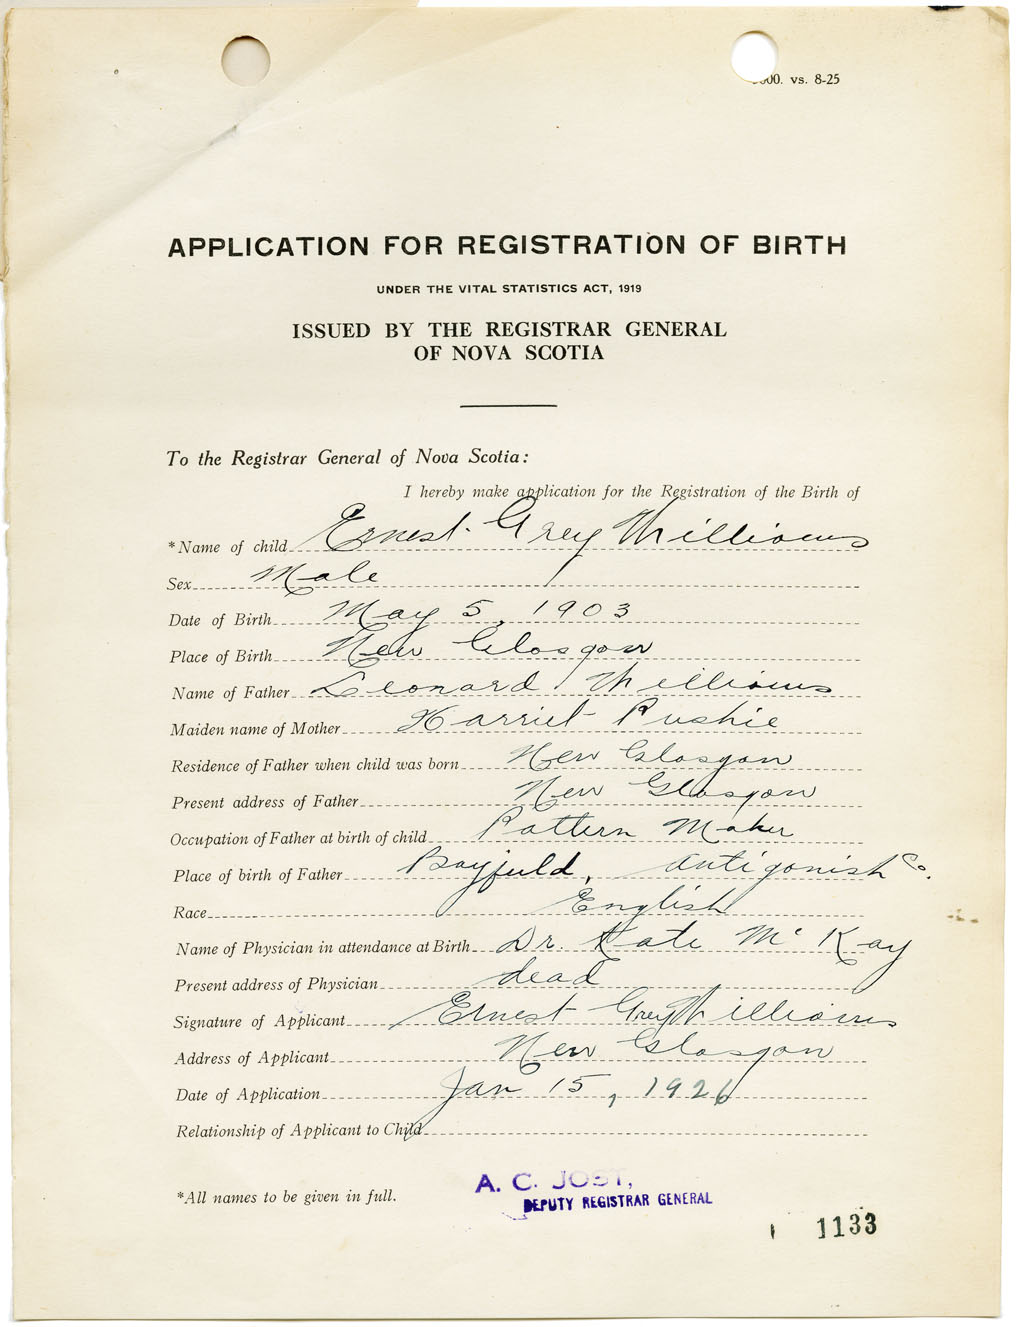 000. vs. 8-25
APPLICATION FOR REGISTRATION OF BIRTH
UNDER THE VITAL STATISTICS ACT, 1919
ISSUED BY THE REGISTRAR GENERAL
OF NOVA SCOTIA
To the Registrar General of Nova Scotia:
I hereby make application for the Registration of the Birth of
*Name of child Ernest Grey Williams
Sex Male
Date of Birth May 5, 1903
Place of Birth New Glasgow
Name of Father Leonard Williams
Maiden name of Mother Harriet Pushie
Residence of Father when child was born New Glasgow
Present address of Father New Glasgow
Occupation of Father at birth of child Pattern Maker
Place of birth of Father Bayfield, Antigonish Co.
Race English
Name of Physician in attendance at Birth Dr. Kate McKay
Present address of Physician dead
Signature of Applicant Ernest Grey Williams
Address of Applicant New Glasgow
Date of Application Jan 15, 1926
Relationship of Applicant to Child
*All names to be given in full.
A. C. JOST,
DEPUTY REGISTRAR GENERAL
1133